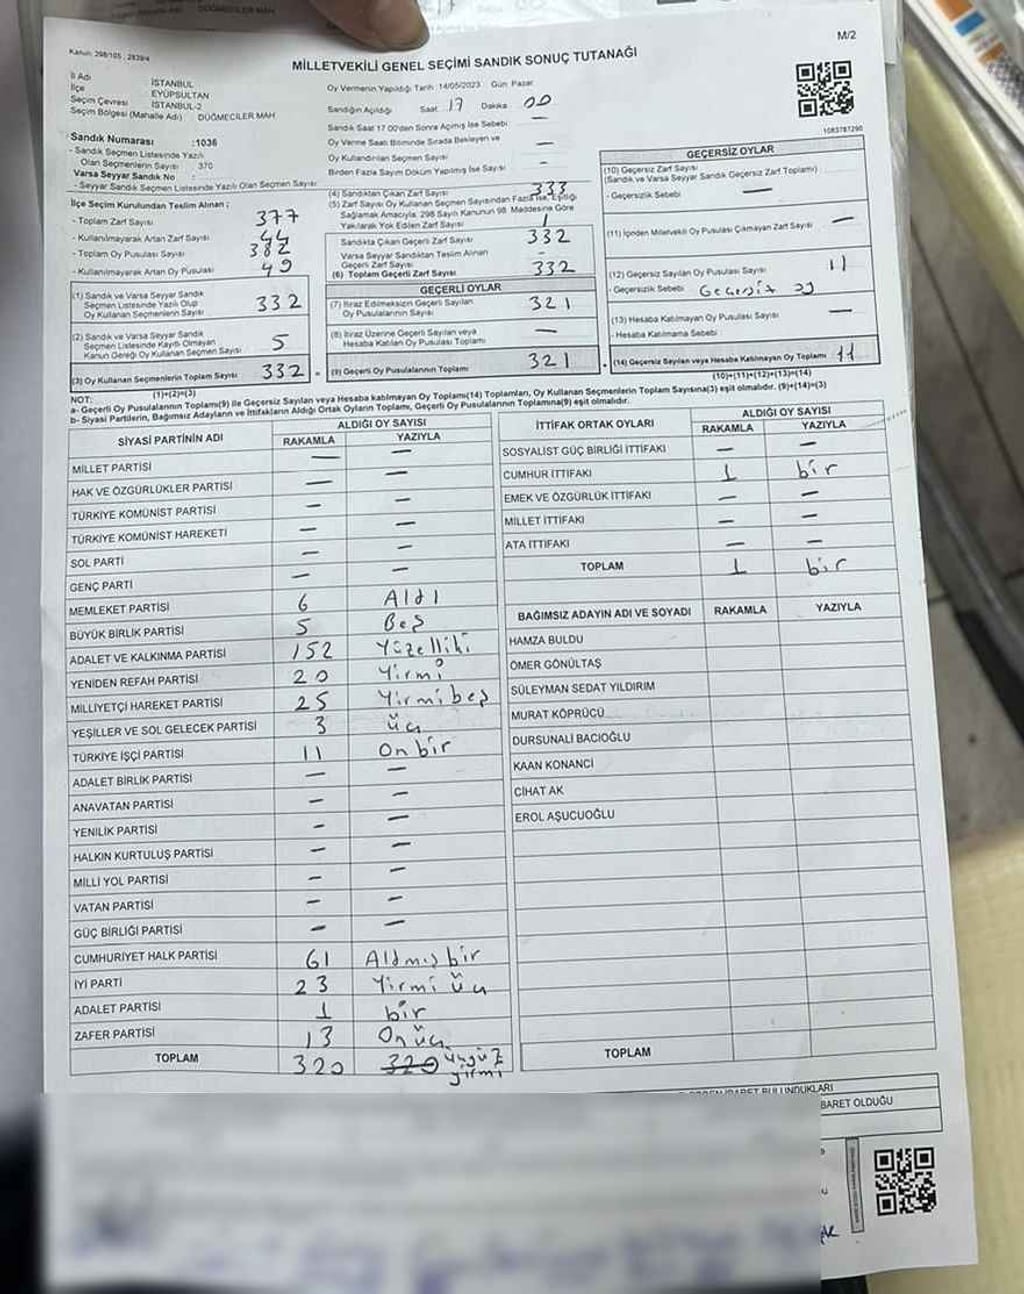 DÜĞMECİLER MAH
M/2
Kanun: 298/105 ; 2839/4
MİLLETVEKİLİ GENEL SEÇİMİ SANDIK SONUÇ TUTANAĞI
İl Adı İSTANBUL
İlçe EYÜPSULTAN
Seçim Çevresi İSTANBUL-2
Seçim Bölgesi (Mahalle Adı) DÜĞMECİLER MAH
Oy Vermenin Yapıldığı Tarih: 14/05/2023 Gün Pazar
Sandığın Açıldığı Saat 17 Dakika 00
Sandık Saat 17:00'den Sonra Açılmış İse Sebebi —
Oy Verme Saati Bitiminde Sırada Bekleyen ve
Oy Kullandırılan Seçmen Sayısı —
Birden Fazla Sayım Döküm Yapılmış İse Sayısı —
1083787290
Sandık Numarası :1036
- Sandık Seçmen Listesinde Yazılı
Olan Seçmenlerin Sayısı 370
Varsa Seyyar Sandık No :
- Seyyar Sandık Seçmen Listesinde Yazılı Olan Seçmen Sayısı
İlçe Seçim Kurulundan Teslim Alınan ;
- Toplam Zarf Sayısı 377
- Kullanılmayarak Artan Zarf Sayısı 44
- Toplam Oy Pusulası Sayısı 382
- Kullanılmayarak Artan Oy Pusulası 49
(1) Sandık ve Varsa Seyyar Sandık
Seçmen Listesinde Yazılı Olup
Oy Kullanan Seçmenlerin Sayısı 332
(2) Sandık ve Varsa Seyyar Sandık
Seçmen Listesinde Kaydı Olmayan
Kanun Gereği Oy Kullanan Seçmen Sayısı 5
(3) Oy Kullanan Seçmenlerin Toplam Sayısı 332
(1)+(2)=(3)
(4) Sandıktan Çıkan Zarf Sayısı 333
(5) Zarf Sayısı Oy Kullanan Seçmen Sayısından Fazla ise, Eşitliği
Sağlamak Amacıyla, 298 Sayılı Kanunun 98. Maddesine Göre
Yakılarak Yok Edilen Zarf Sayısı 1
Sandıkta Çıkan Geçerli Zarf Sayısı 332
Varsa Seyyar Sandıktan Teslim Alınan
Geçerli Zarf Sayısı -
(6) Toplam Geçerli Zarf Sayısı 332
GEÇERLİ OYLAR
(7) İtiraz Edilmeksizin Geçerli Sayılan
Oy Pusulalarının Sayısı 321
(8) İtiraz Üzerine Geçerli Sayılan veya
Hesaba Katılan Oy Pusulası Toplamı —
(9) Geçerli Oy Pusulalarının Toplamı 321
GEÇERSİZ OYLAR
(10) Geçersiz Zarf Sayısı
(Sandık ve Varsa Seyyar Sandık Geçersiz Zarf Toplamı)
- Geçersizlik Sebebi —
(11) İçinden Milletvekili Oy Pusulası Çıkmayan Zarf Sayısı —
(12) Geçersiz Sayılan Oy Pusulası Sayısı 11
- Geçersizlik Sebebi Geçersiz oy
(13) Hesaba Katılmayan Oy Pusulası Sayısı —
- Hesaba Katılmama Sebebi
(14) Geçersiz Sayılan veya Hesaba Katılmayan Oy Toplamı 11
(10)+(11)+(12)+(13)=(14)
NOT:
a- Geçerli Oy Pusulalarının Toplamı(9) ile Geçersiz Sayılan veya Hesaba katılmayan Oy Toplamı(14) Toplamları, Oy Kullanan Seçmenlerin Toplam Sayısına(3) eşit olmalıdır. (9)+(14)=(3)
b- Siyasi Partilerin, Bağımsız Adayların ve İttifakların Aldığı Ortak Oyların Toplamı, Geçerli Oy Pusulalarının Toplamına(9) eşit olmalıdır.
SİYASİ PARTİNİN ADI ALDIĞI OY SAYISI
RAKAMLA YAZIYLA
MİLLET PARTİSİ — —
HAK VE ÖZGÜRLÜKLER PARTİSİ — —
TÜRKİYE KOMÜNİST PARTİSİ — —
TÜRKİYE KOMÜNİST HAREKETİ — —
SOL PARTİ — —
GENÇ PARTİ — —
MEMLEKET PARTİSİ 6 Altı
BÜYÜK BİRLİK PARTİSİ 5 Beş
ADALET VE KALKINMA PARTİSİ 152 Yüzelliki
YENİDEN REFAH PARTİSİ 20 Yirmi
MİLLİYETÇİ HAREKET PARTİSİ 25 Yirmibeş
YEŞİLLER VE SOL GELECEK PARTİSİ 3 üç
TÜRKİYE İŞÇİ PARTİSİ 11 Onbir
ADALET BİRLİK PARTİSİ — —
ANAVATAN PARTİSİ — —
YENİLİK PARTİSİ — —
HALKIN KURTULUŞ PARTİSİ — —
MİLLİ YOL PARTİSİ — —
VATAN PARTİSİ — —
GÜÇ BİRLİĞİ PARTİSİ — —
CUMHURİYET HALK PARTİSİ 61 Altmışbir
İYİ PARTİ 23 Yirmi üç
ADALET PARTİSİ 1 bir
ZAFER PARTİSİ 13 Onüç
TOPLAM 320 320 üçyüz
yirmi
İTTİFAK ORTAK OYLARI ALDIĞI OY SAYISI
RAKAMLA YAZIYLA
SOSYALİST GÜÇ BİRLİĞİ İTTİFAKI — —
CUMHUR İTTİFAKI 1 bir
EMEK VE ÖZGÜRLÜK İTTİFAKI — —
MİLLET İTTİFAKI — —
ATA İTTİFAKI — —
TOPLAM 1 bir
BAĞIMSIZ ADAYIN ADI VE SOYADI RAKAMLA YAZIYLA
HAMZA BULDU
ÖMER GÖNÜLTAŞ
SÜLEYMAN SEDAT YILDIRIM
MURAT KÖPRÜCÜ
DURSUNALİ BACIOĞLU
KAAN KONANCİ
CİHAT AK
EROL AŞUCUOĞLU
TOPLAM
BULUNDUKLARI
BARET OLDUĞU